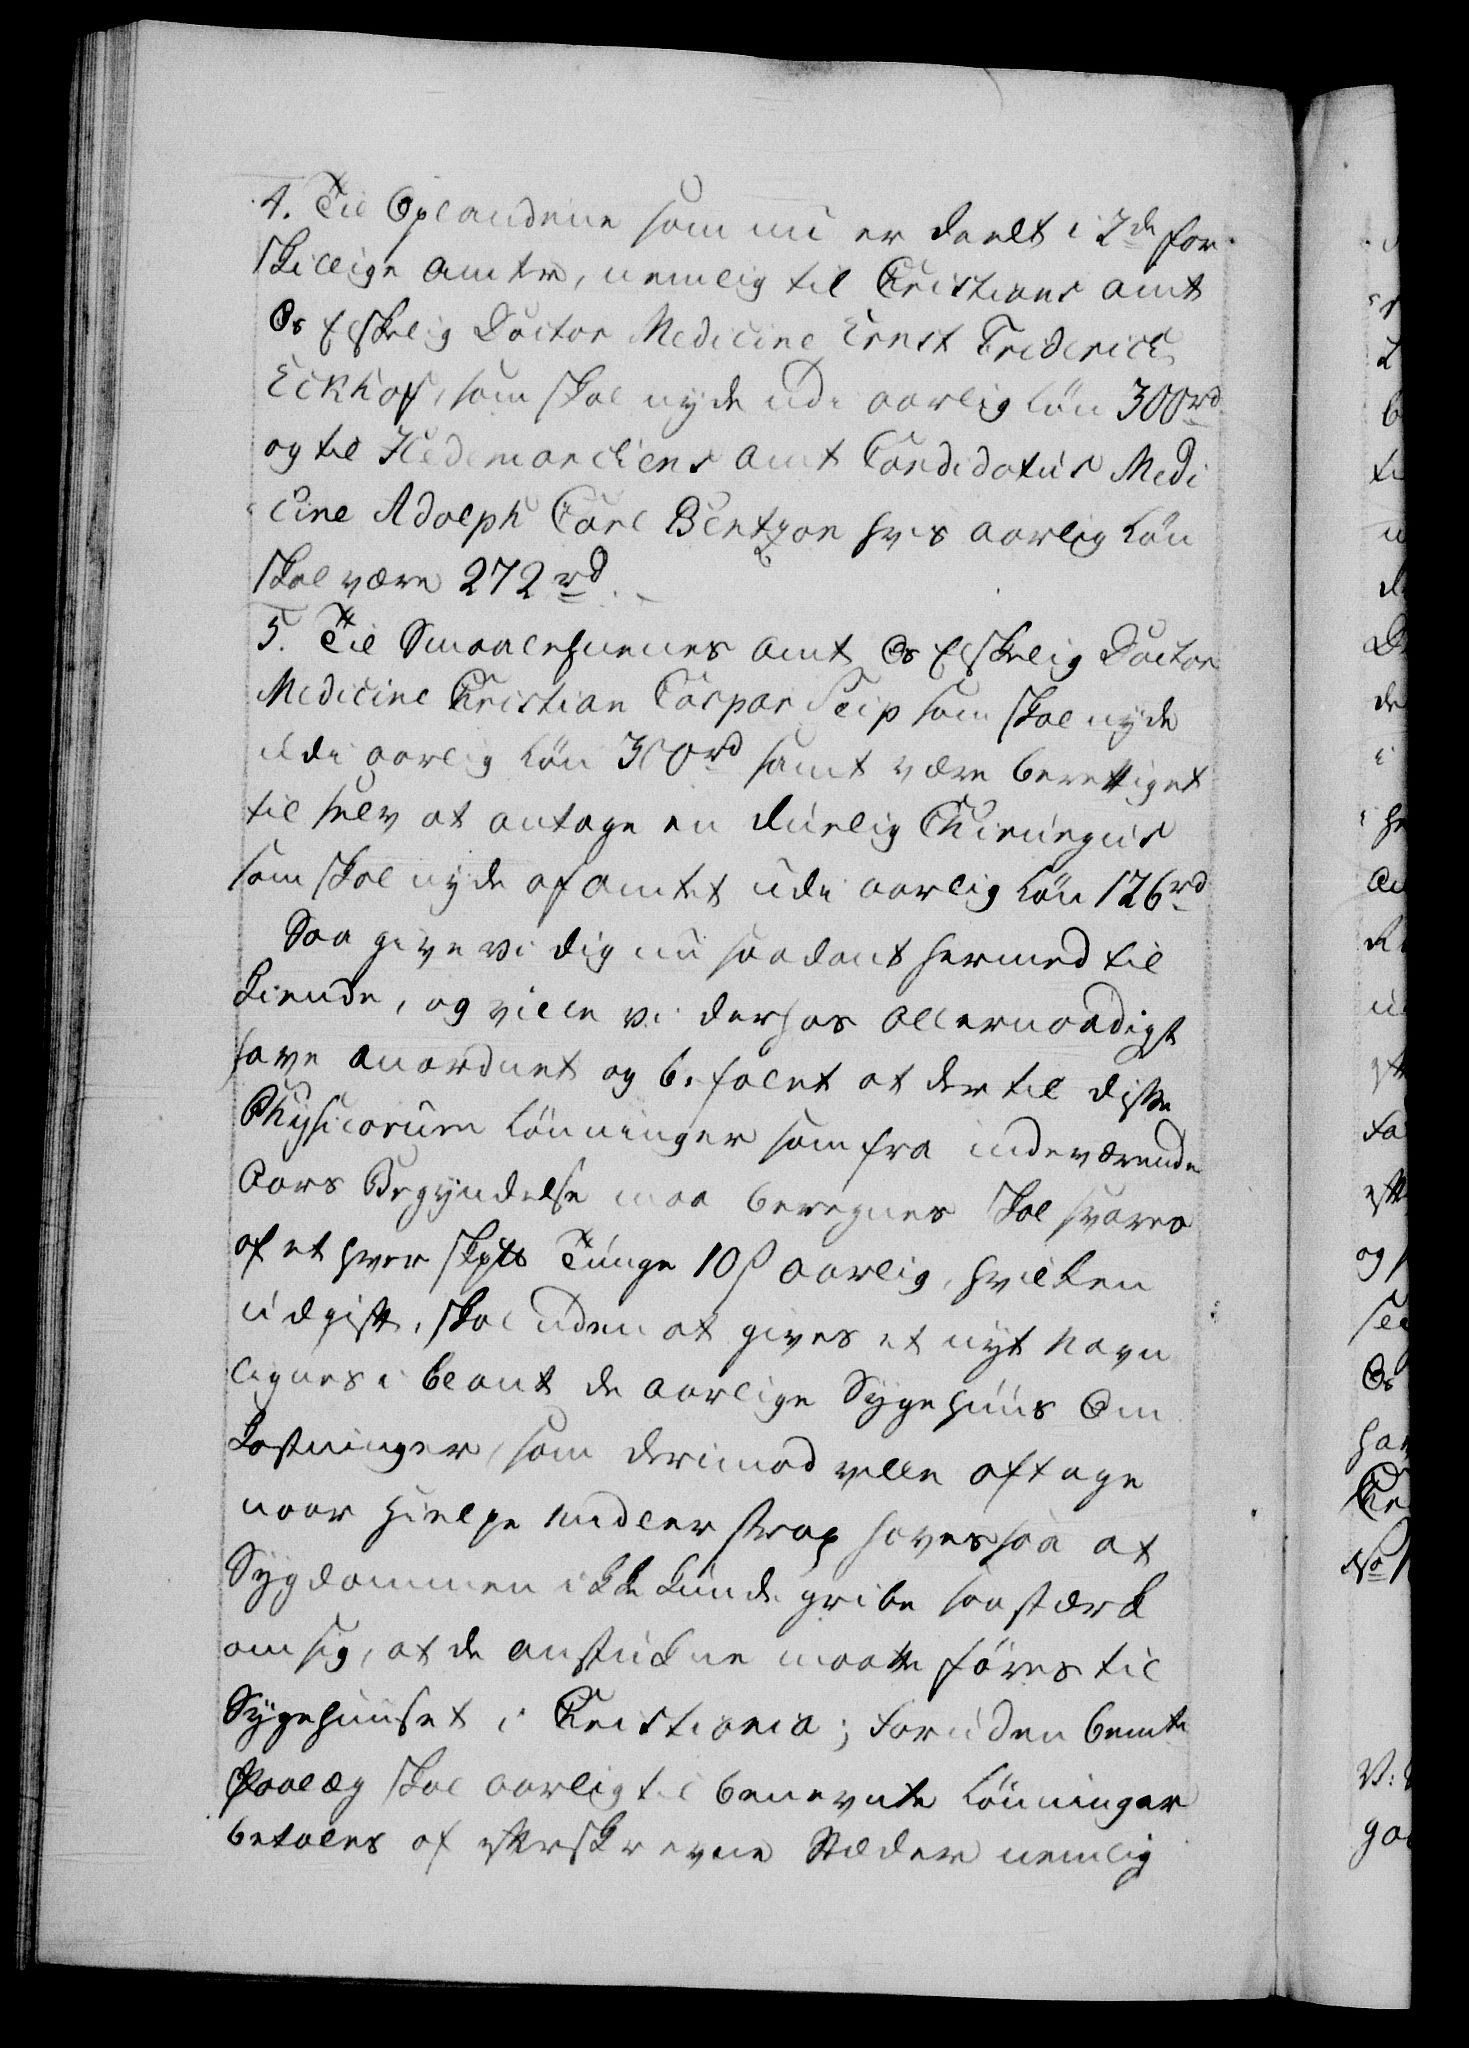 4. Til Oplandene som nu er deelt i 2de for-
skillige Amter, nemlig til Christians Amt
Os Elskelig Doctor Medicinæ Ernst Friderich
Eckhof, som skal nyde udi aarlig Løn 300rd
og til Hedemarchens Amt Candidatus Medi
cinæ Adolph Carl Bentzon hvis aarlig Løn
skal være 272rd.
5. Til Smaalehnenes Amt Os Elskelig Doctor
Medicinæ Christian Caspar Seip som skal nyde
udi aarlig Løn 300rd samt være berettiget
til selv at antage en duelig Chirurgus
som skal nyde af Amtet udi aarlig Løn 126rd
Saa give vi dig nu saadant hermed til
kiende, og ville vi derhos allernaadigst
have anordnet og befalet at der til disse
Physicorum Lønninger som fra indeværende
Aars Begyndelse maa beregnes skal svares
af et hver Tunge 10ß aarlig, hvilken
udgift, skal uden at gives et nyt Navn
lignes i blant de aarlige Sygehuus Om
kostninger, som derimod ville aftage
naar Hielpe Midler strax haves saa at
Sygdommen ikke kunde gribe saa stærk
om sig, at de anstukne maatte føres til
Sygehuuset i Christiania; foruden bemte
Paalæg skal aarlig til benevnte Lønninger
betales af efterskrevne Stæder nemlig